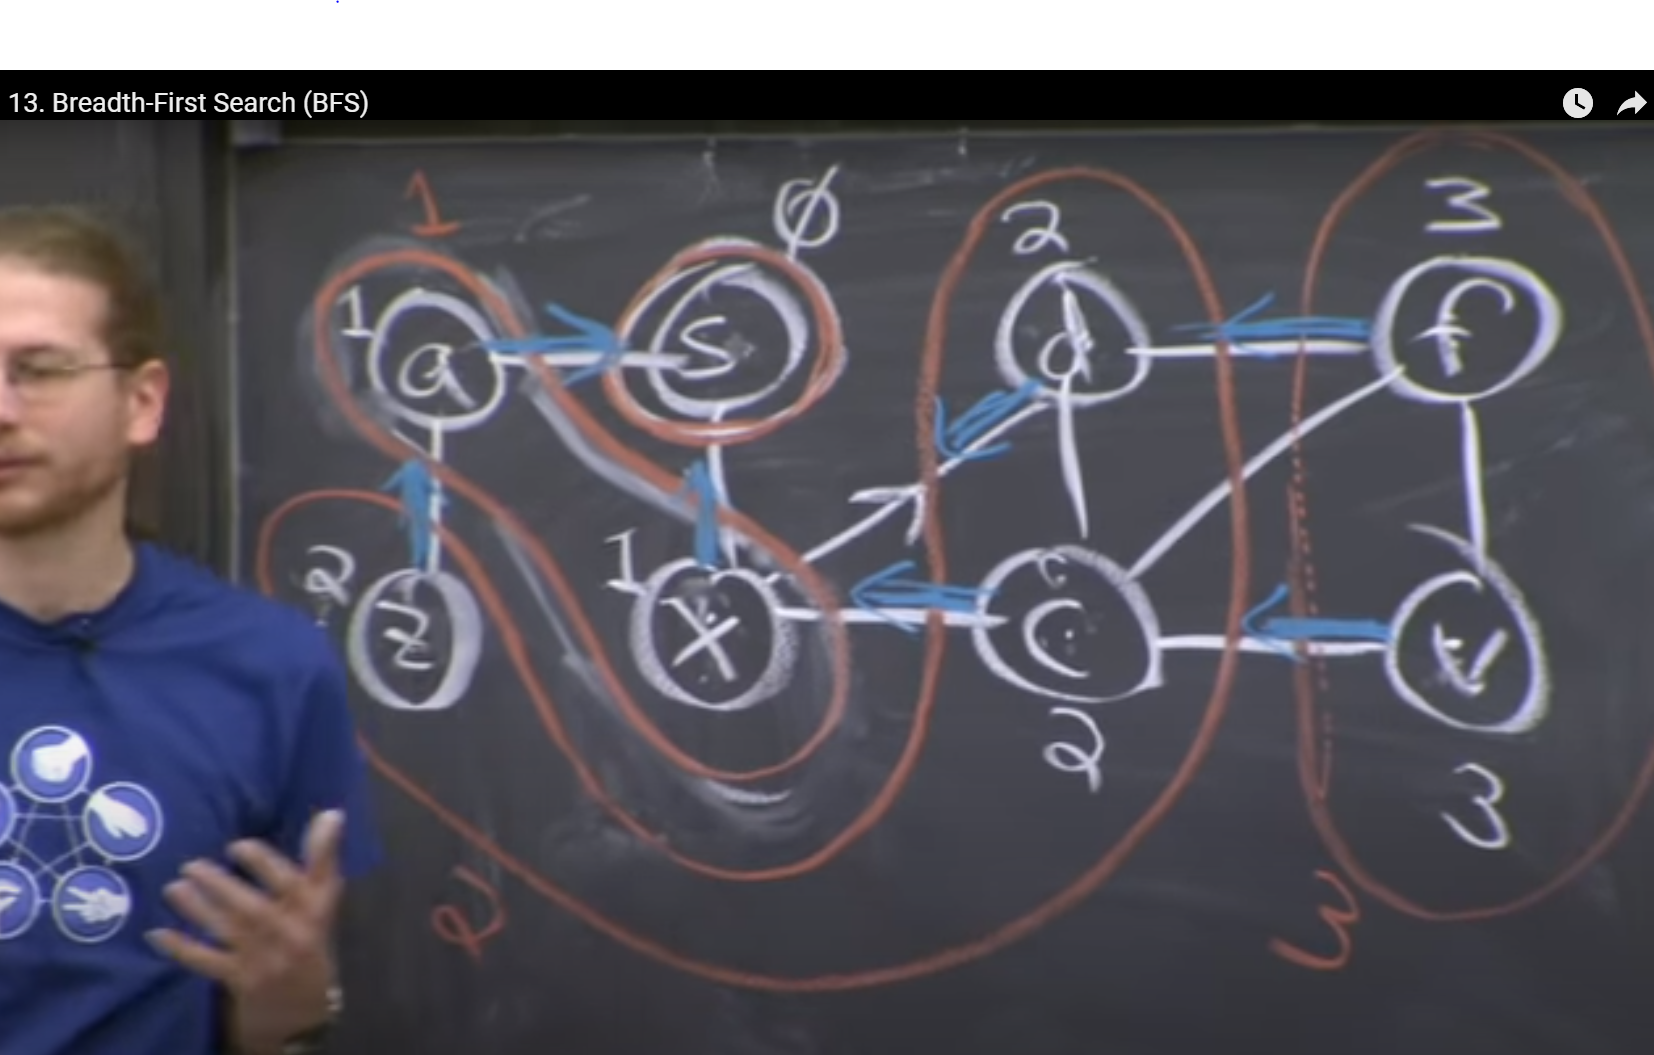 13. Breadth-First Search (BFS)
1
0
2
3
1
a
s
d
f
2
1
z
x
c
v
2
3
2
3